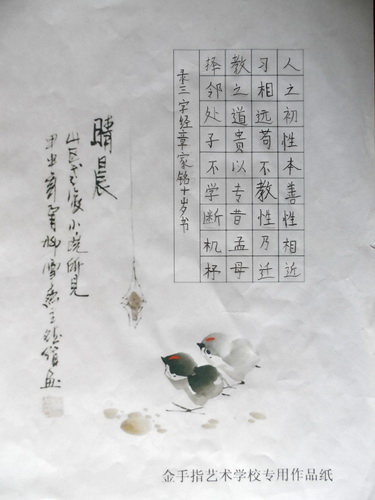 人之初性本善性相近
习相远苟不教性乃迁
教之道贵以专昔孟母
择邻处子不学断机杼
三字经章家铭十岁书
晴晨
小院所见
金手指艺术学校专用作品纸